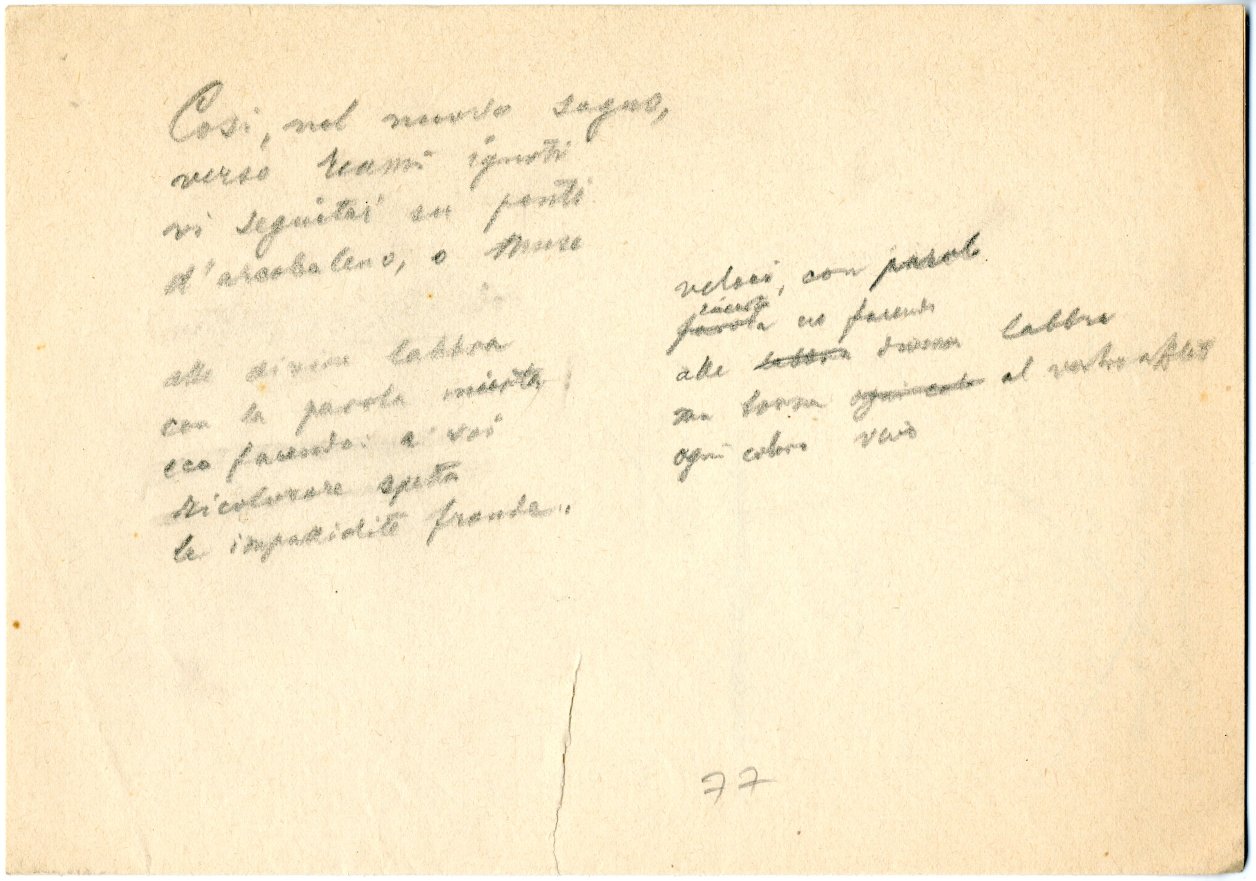 Così, nel nuovo sogno,
verso reami ignoti
vi seguitai su ponti
d'arcobaleno, o Muse
alle divine labbra
con la parola incerta
eco facendo: a voi
ricolorare spetta
le impallidite fronde.
veloci, con parole
incerta
parola eco facendo
alle labbra divine labbra
ma torna ogni colo al vostro
ogni colore vivo
77